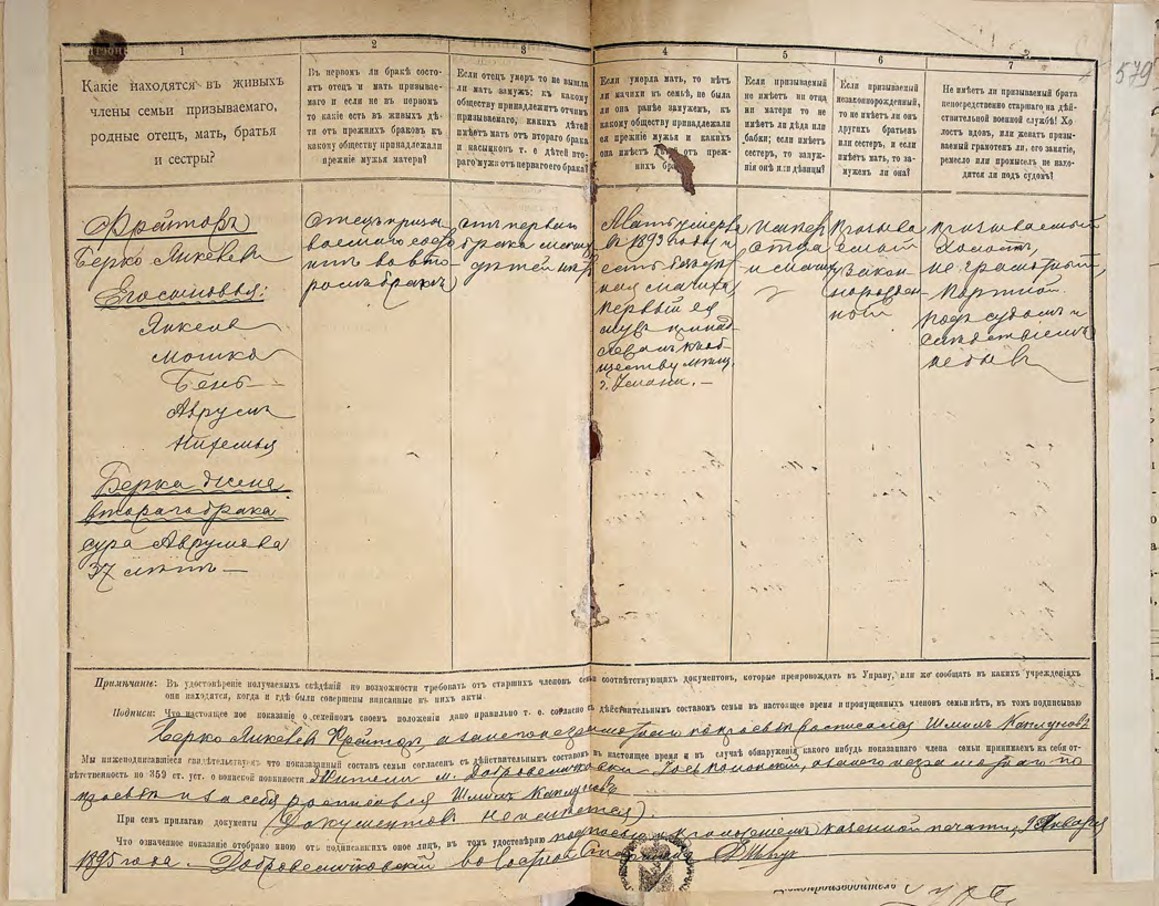 1
2
3
4
5
6
7
579
Какіе находятся въ живыхъ
члены семьи призываемаго,
родные отецъ, мать, братья
и сестры?
Въ первомъ ли бракѣ состо-
ятъ отецъ и мать призывае-
маго и если не въ первомъ
то какіе есть въ живыхъ дѣ-
ти отъ прежнихъ браковъ къ
какому обществу принадлежали
прежніе мужья матери?
Если отецъ умеръ то не вышла
ли мать замужъ; къ какому
обществу принадлежитъ отчимъ
призываемаго, какихъ дѣтей
имѣетъ мать отъ втораго брака
и пасынковъ т. е. дѣтей вто-
раго мужа отъ перваго его брака?
Если умерла мать, то нѣтъ
ли мачихи въ семьѣ, не была
ли она ранѣе замужемъ, къ
какому обществу принадлежали
ея прежніе мужья и какихъ
она имѣетъ дѣтей отъ преж-
нихъ
Если призываемый
не имѣетъ ни отца
ни матери то не
имѣетъ ли дѣда или
бабки; если имѣетъ
сестеръ, то замуж-
нія онѣ или дѣвицы?
Если призываемый
незаконнорожденный,
то не имѣетъ ли онъ
другихъ братьевъ
или сестеръ, и если
имѣетъ мать, то за-
мужемъ ли она?
Не имѣетъ ли призываемый брата
непосредственно старшаго на дѣй-
ствительной военной службѣ? Хо-
лостъ вдовъ, или женатъ призы-
ваемый грамотенъ ли, его занятіе,
ремесло или промыселъ не нахо-
дится ли подъ судомъ?
Берко Янкелевъ
Его сыновья:
Янкель
Мошко
Бень
Аврумъ
Берка жена
втораго брака
сура Аврумова
37 лѣтъ
Отецъ призы
ваемаго состо
итъ во вто
ромъ бракѣ
отъ перваго
брака
дѣтей
Мать умерла
въ 1893 году и
есть бездѣт
ная мачиха,
первый ея
мужъ принад
лежалъ къ об
ществу
г. Умани. —
отца
и
Призыва
емый
закон
норожден
ный
призываемый
холостъ,
не грамотный,
портной
подъ судомъ и
слѣдствіемъ
не былъ
Примѣчаніе: Въ удостовѣреніе получаемыхъ свѣдѣній по возможности требовать отъ старшихъ членовъ семьи соотвѣтствующихъ документовъ, которые препровождать въ Управу, или же сообщать въ какихъ учрежденіяхъ
они находятся, когда и гдѣ были совершены вписанные въ нихъ акты.
Подписи: Что настоящее мое показаніе о семейномъ своемъ положеніи дано правильно т. е. согласно съ дѣйствительнымъ составомъ семьи въ настоящее время и пропущенныхъ членовъ семьи нѣтъ, въ томъ подписываю
Берко Янкелевъ а за него неграмотнаго по просьбѣ расписался Шмилъ Каплуновъ
Мы нижеподписавшіеся свидѣтельствуемъ что показанный составъ семьи согласенъ съ дѣйствительнымъ составомъ въ настоящее время и въ случаѣ обнаруженія какого нибудь показаннаго члена семьи принимаемъ на себя от-
вѣтственность по 359 ст. уст. о воинской повинности Жители м. Добровеличковки а за него неграмотнаго по
просьбѣ и за себя росписался Шмилъ Каплуновъ
При семъ прилагаю документы (Документовъ не имѣется).
Что означенное показаніе отобрано мною отъ подписавшихъ оное лицъ, въ томъ удостовѣряю подписью и приложеніемъ казенной печати, 9 Января
1895 года. Добровеличковскій волостной Старшина
Дѣлопроизводитель